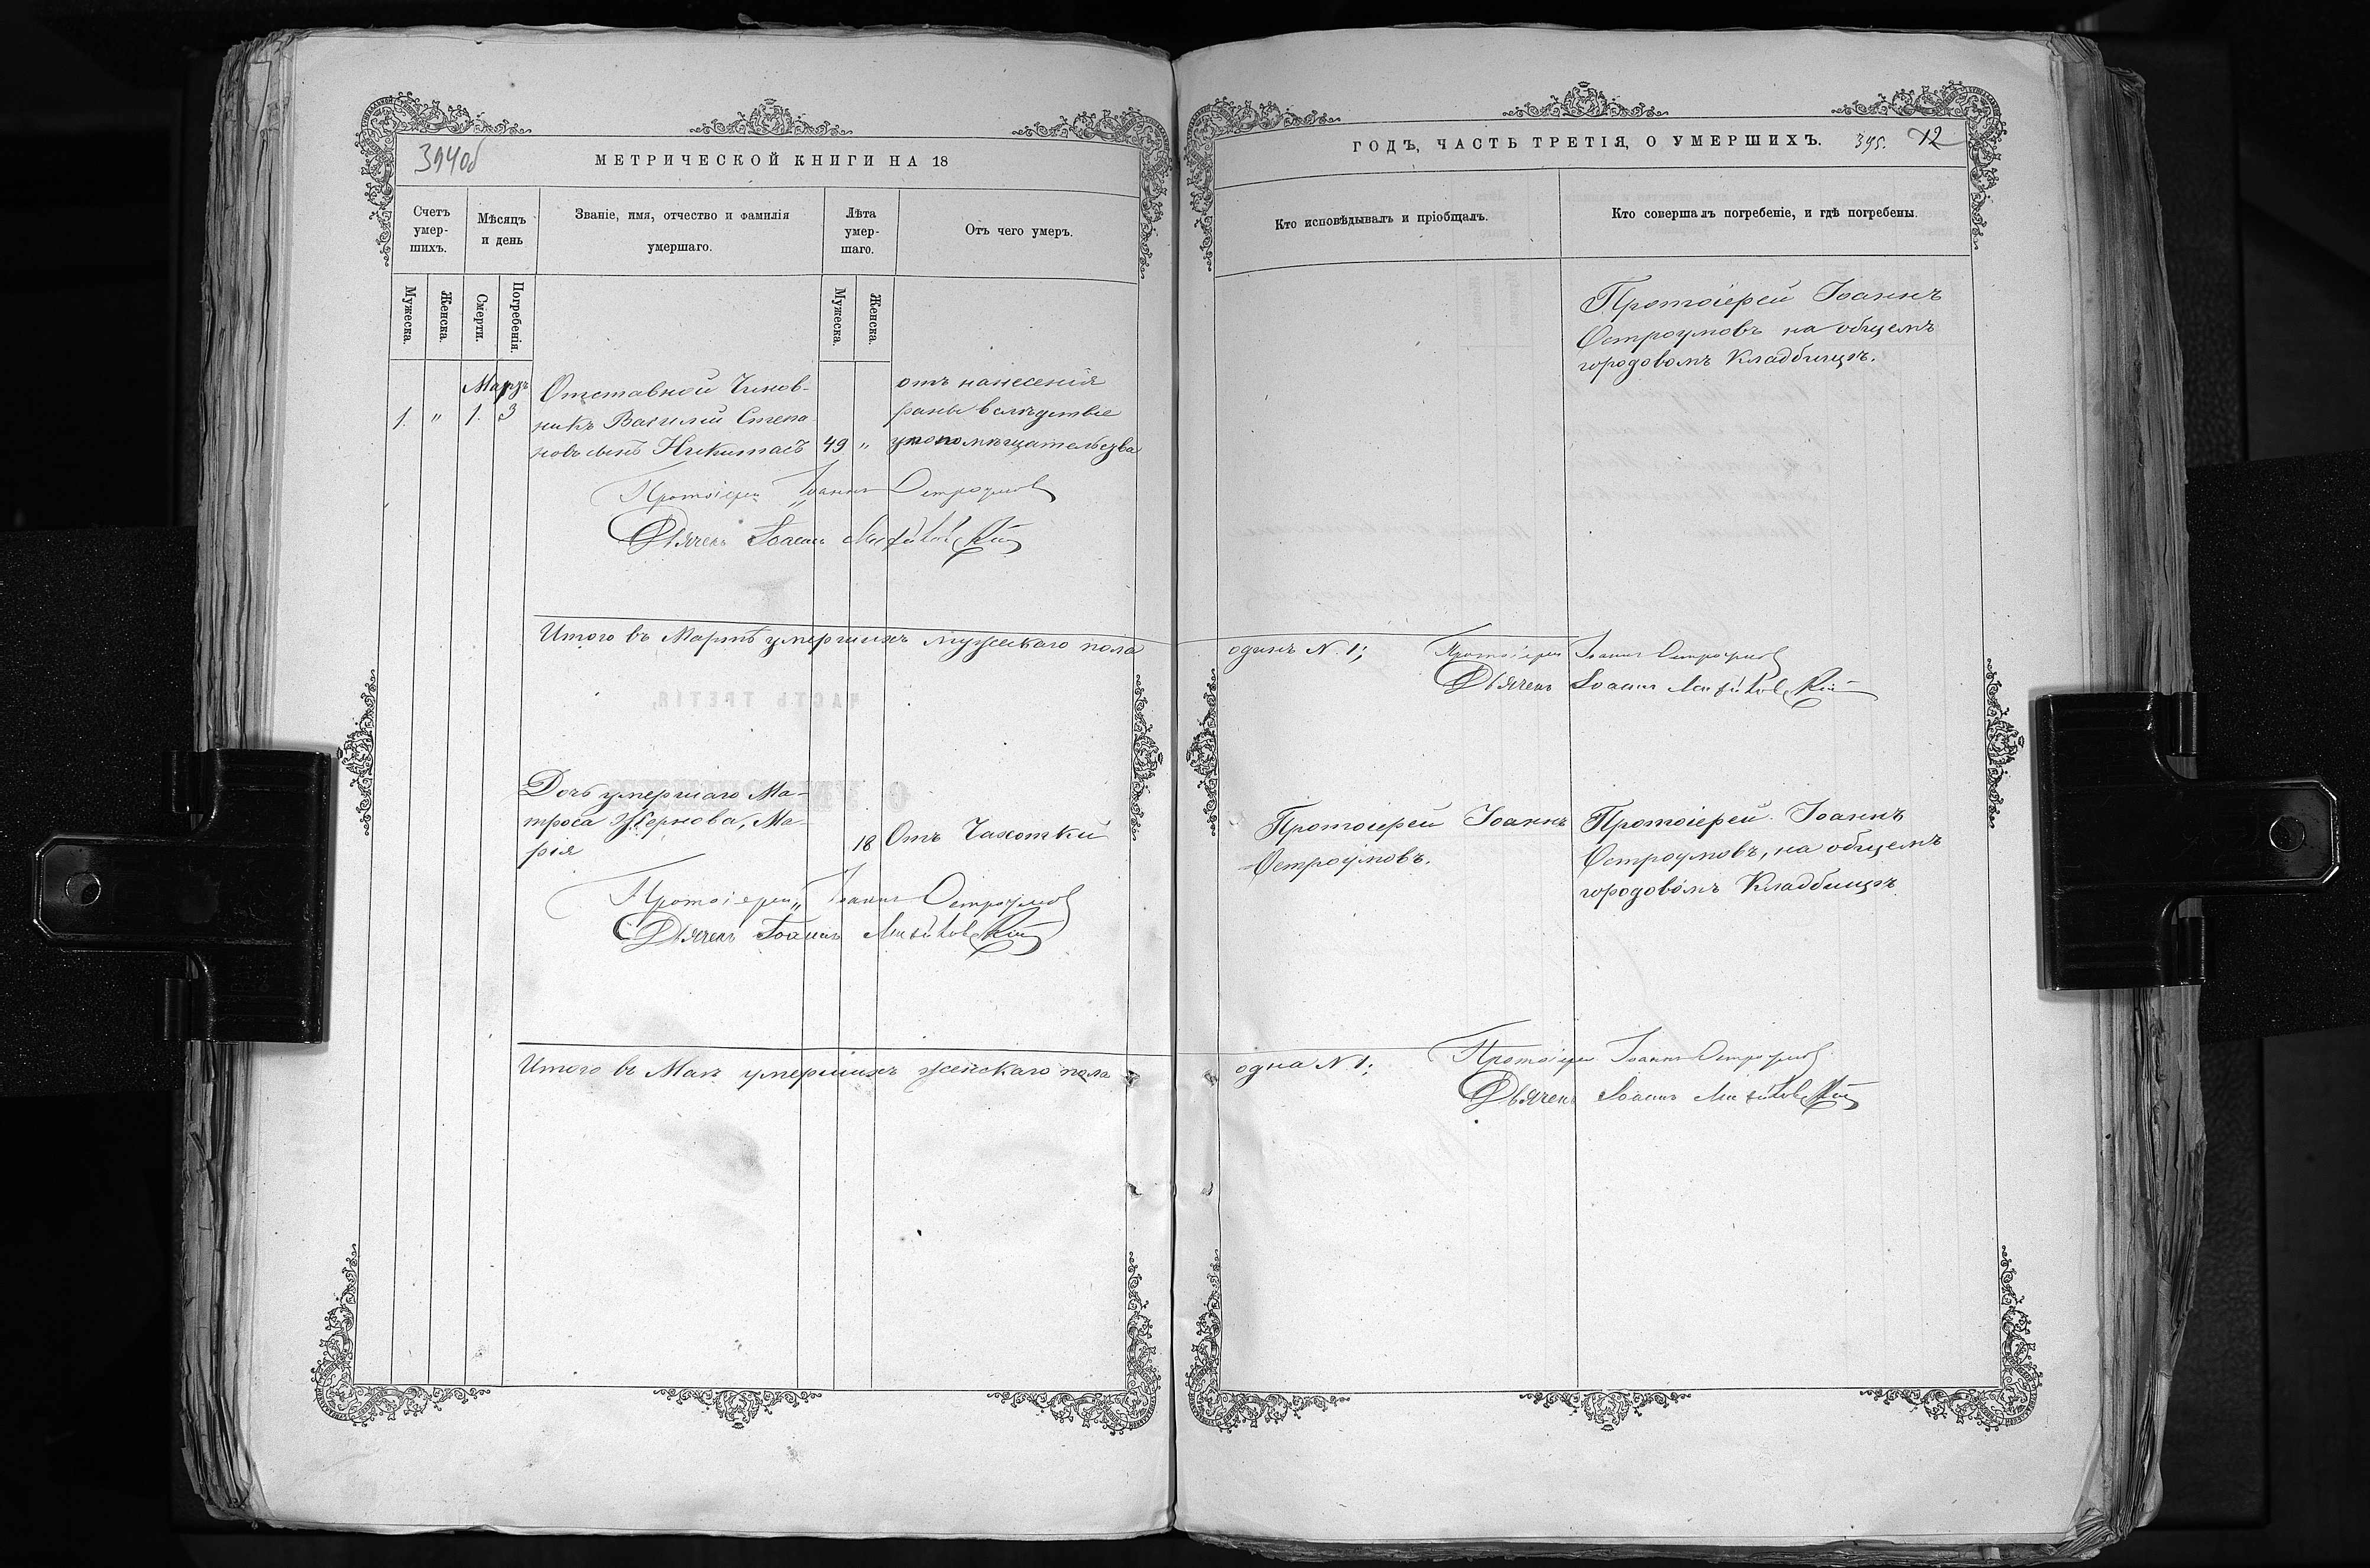 394об
МЕТРИЧЕСКОЙ КНИГИ НА 18
Счетъ умер-шихъ.
Мѣсяцъ и день
Званіе, имя, отчество и фамилія умершаго.
Лѣта умер-шаго.
Отъ чего умеръ.
Мужеска.
Женска.
Смерти.
Погребенія.
Мужеска.
Женска.
Мартъ
1. " 1. 3
Отставной Чинов-
никъ Василий Степа
новъ сынъ Никитасъ
49 "
отъ нанесенія
раны вслѣдствіе
умопомѣшательства
Протоіерей Іоаннъ Остроумов
Дьячекъ Іоаннъ
Итого въ Мартѣ умершихъ мужескаго пола
Дочь умершаго Ма-
троса Жернова, Ма-
рія
18
Отъ Чахотки
Протоіерей Іоаннъ Остроумов
Дьячекъ Іоаннъ
Итого въ Маѣ умершихъ женскаго пола
ГОДЪ, ЧАСТЬ ТРЕТІЯ, О УМЕРШИХЪ.
395. 12
Кто исповѣдывалъ и пріобщалъ.
Кто совершалъ погребеніе, и гдѣ погребены.
Протоіерей Іоаннъ
Остроумовъ на общемъ
городовомъ Кладбищѣ.
одинъ N. 1;
Протоіерей Іоаннъ Остроумов
Дьячекъ Іоаннъ
Протоіерей Іоаннъ
Остроумовъ.
Протоіерей Іоаннъ
Остроумовъ, на общемъ
городовомъ Кладбищѣ
одна N 1;
Протоіерей Іоаннъ Остроумов
Дьячекъ Іоаннъ